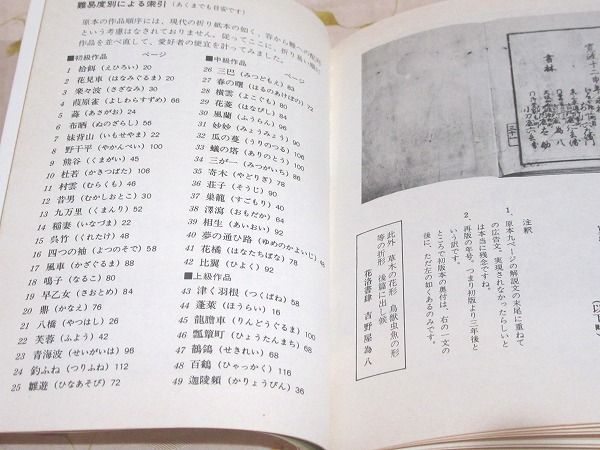 難易度別による索引（あくまでも目安です）
原本の作品順序には、現代の折り紙本の如く、
という考慮はなされておりません。従ってここに、折り易い順に
作品を並べ直して、愛好者の便宜を計ってみました。
■初級作品　ページ
1 拾餌（えひろい）20
2 花見車（はなみぐるま）20
3 楽々波（さざなみ）30
4 葭原雀（よしわらすずめ）66
5 蕣（あさがお）24
6 布晒（ぬのざらし）56
7 妹背山（いもせやま）22
8 野干平（やかんべい）100
9 熊谷（くまがい）45
10 杜若（かきつばた）106
11 村雲（むらくも）46
12 昔男（むかしおとこ）30
13 九万里（くまんり）52
14 稲妻（いなづま）22
15 呉竹（くれたけ）48
16 四つの袖（よつのそで）58
17 風車（かざぐるま）88
18 鳴子（なるこ）80
19 早乙女（さおとめ）84
20 鼎（かなえ）70
21 八橋（やつはし）26
22 芙蓉（ふよう）42
23 青海波（せいがいは）96
24 釣ふね（つりふね）112
25 雛遊（ひなあそび）72
■中級作品　ページ
26 三巴（みつどもえ）83
27 春の曙（はるのあけぼの）72
28 横雲（よこぐも）80
29 花菱（はなびし）
30 風蘭（ふうらん）96
31 妙妙（みょうみょう）
32 瓜の蔓（うりのつる）
33 蟻の塔（ありのとう）100
34 三が一（みつがいち）
35 寄木（やどりぎ）78
36 荘子（そうじ）90
37 巣籠（すごもり）40
38 澤瀉（おもだか）54
39 相生（あいおい）92
40 夢の通ひ路（ゆめのかよいじ）
41 花橘（はなたちばな）
42 比翼（ひよく）92
■上級作品
43 津く羽根（つくばね）58
44 蓬莱（ほうらい）16
45 龍膽車（りんどうぐるま）100
46 瓢箪町（ひょうたんまち）60
47 鶺鴒（せきれい）68
48 百鶴（ひゃっかく）116
49 迦陵頻（かりょうびん）36
書林
注釈
1、原本九ページの解説文の末尾に重ねて
の広告文。実現されなかったらしいと
は本当に残念ですね。
2、再版の年号。つまり初版より三年後と
いう訳です。
ところで初版本の奥付は、右の一文の
後に、ただ左の如くあるのみです。
此外　草木の花形　鳥獣虫魚の形
等の折形　後篇に出し候
花洛書肆　吉野屋為八